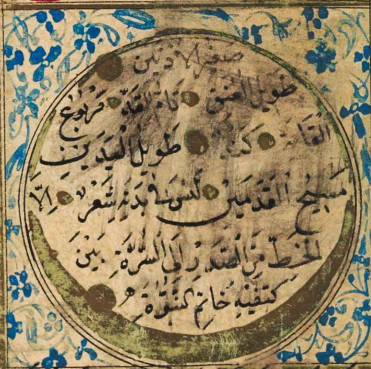 صغير الاذنين
طويل العنق تام القد مربوع
القامة طويل اليدين
مسيح القدمين ليس في بدنه شعر الا
الخط من الصدر الى السرة بين
كتفيه خاتم النبوة